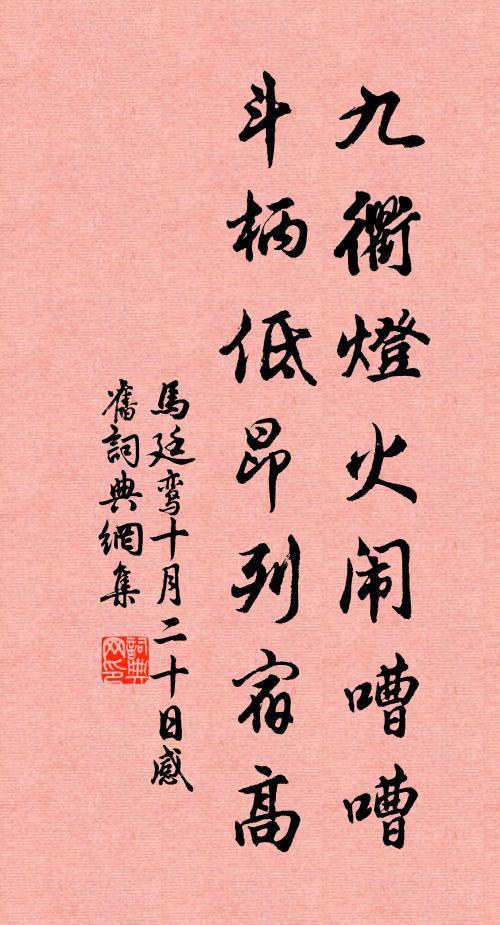 九衢燈火闹嘈嘈
斗柄低昂列宿高
馬廷鸾十月二十日感
舊詞典網集
詞典
网印